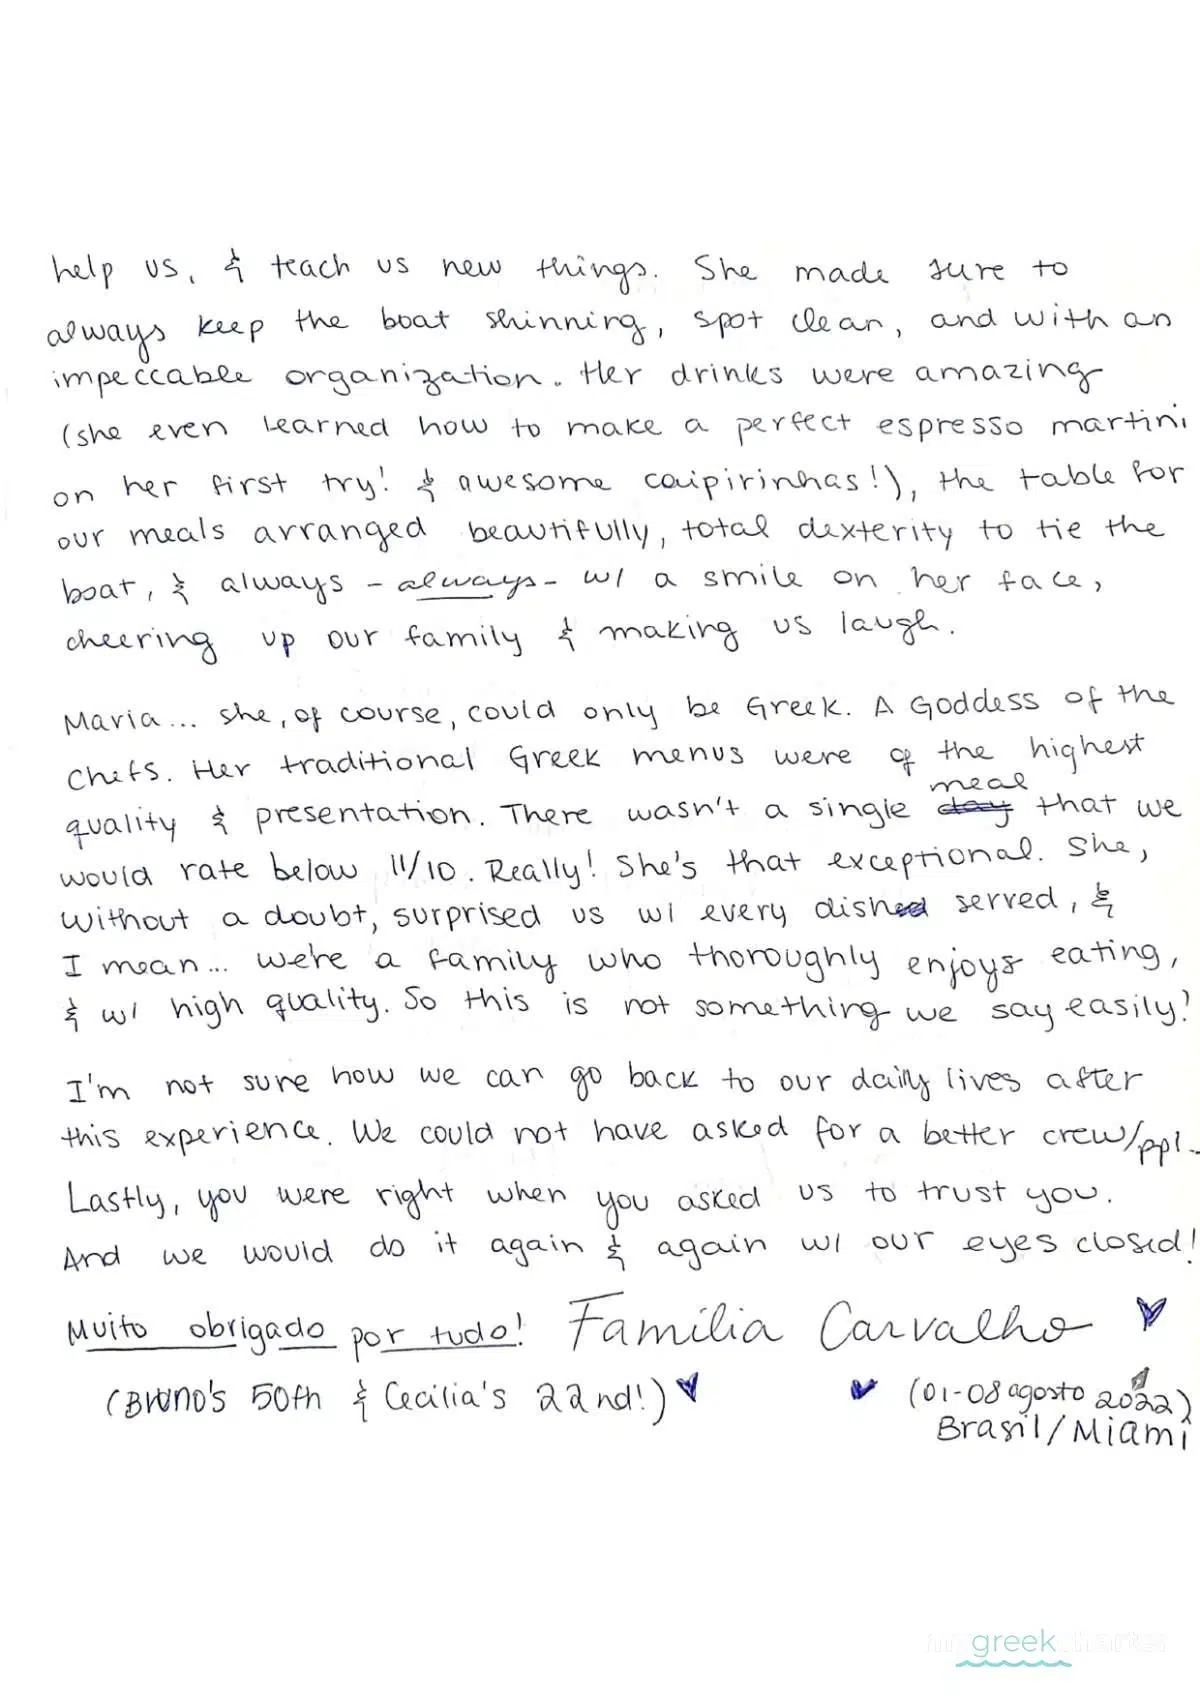 help us, & teach us new things. She made sure to
always keep the boat shinning, spot clean, and with an
impeccable organization. Her drinks were amazing
(she even learned how to make a perfect espresso martini
on her first try! & awesome caipirinhas!), the table for
our meals arranged beautifully, total dexterity to tie the
boat, & always - always - w/ a smile on her face,
cheering up our family & making us laugh.
Maria... she, of course, could only be Greek. A Goddess of the
chefs. Her traditional Greek menus were of the highest
quality & presentation. There wasn't a single day meal that we
would rate below 11/10. Really! She's that exceptional. She,
without a doubt, surprised us w/ every dish served, &
I mean... we're a family who thoroughly enjoys eating,
& w/ high quality. So this is not something we say easily!
I'm not sure how we can go back to our daily lives after
this experience. We could not have asked for a better crew/ppl.
Lastly, you were right when you asked us to trust you.
And we would do it again & again w/ our eyes closed!
Muito obrigado por tudo! Família Carvalho
(Bruno's 50th & Cecilia's 22nd!) (01-08 agosto 2022)
Brasil/Miami
mygreekcharter